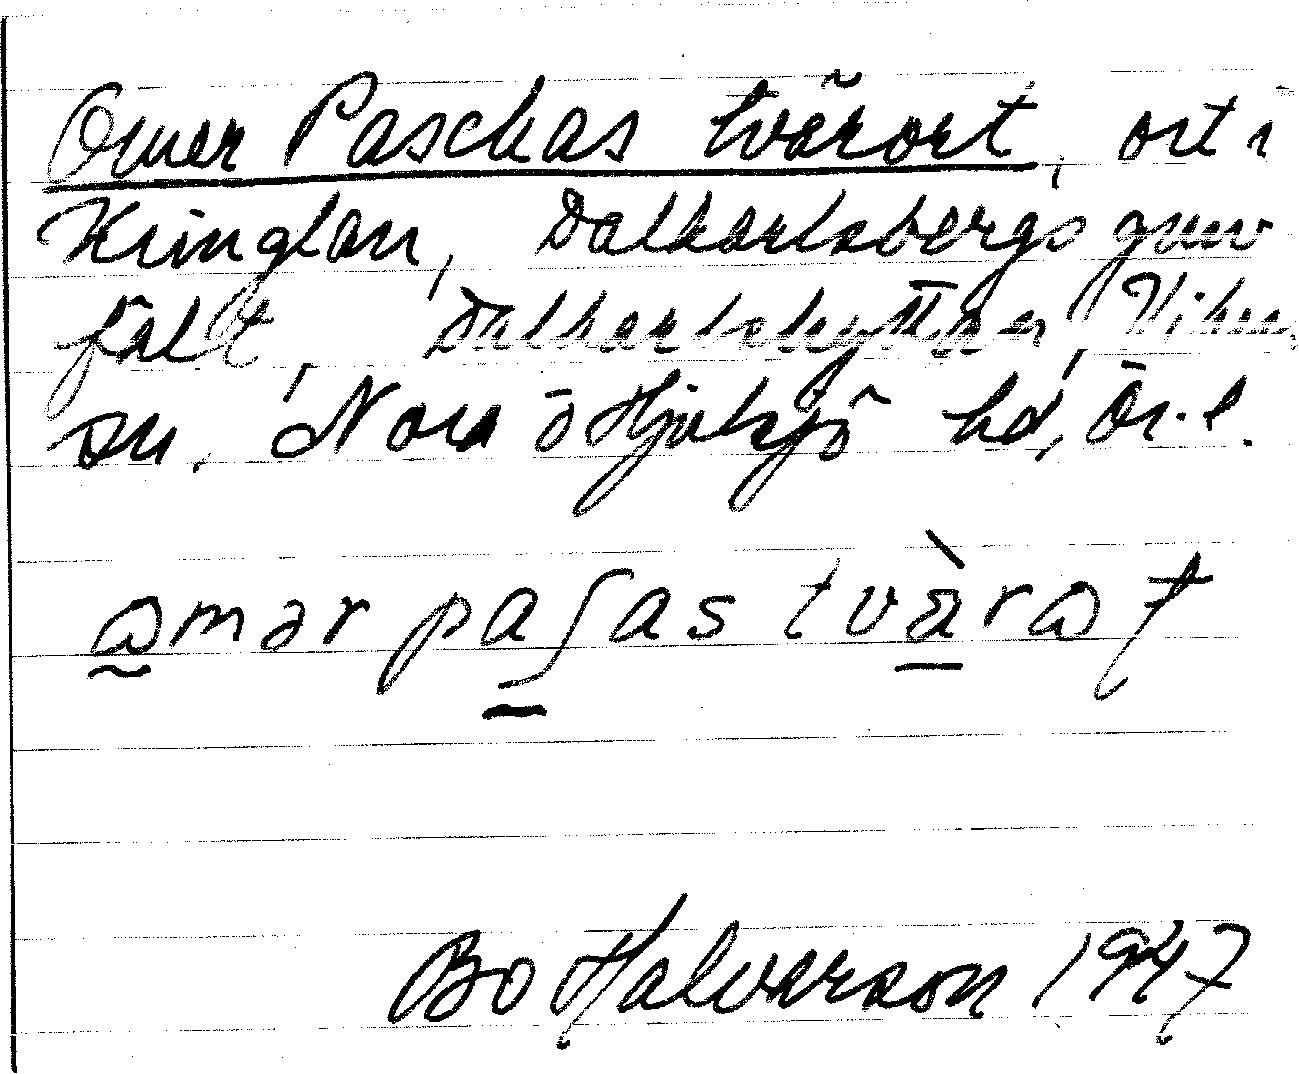 Omer Paschas tvärort, ort i
Kringlan, Dalkarlsbergs gruv
fält, Dalkarlshyttan, Viker
sn. Nora o Hjulsjö hd, Ör. l.
amər paʃas tvärat
Bo Halvarson 1947